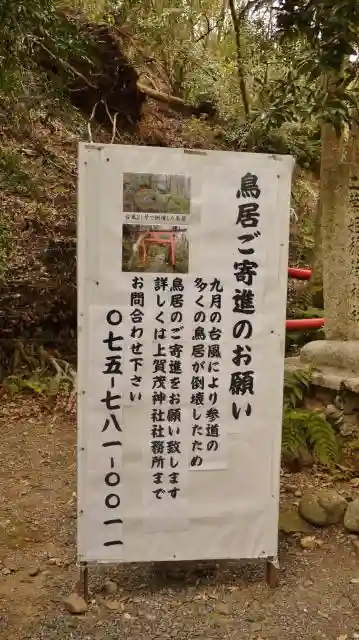 鳥居ご寄進のお願い
九月の台風により参道の
多くの鳥居が倒壊したため
鳥居のご寄進をお願い致します
詳しくは上賀茂神社社務所まで
お問合わせ下さい
〇七五-七八一-〇〇一一